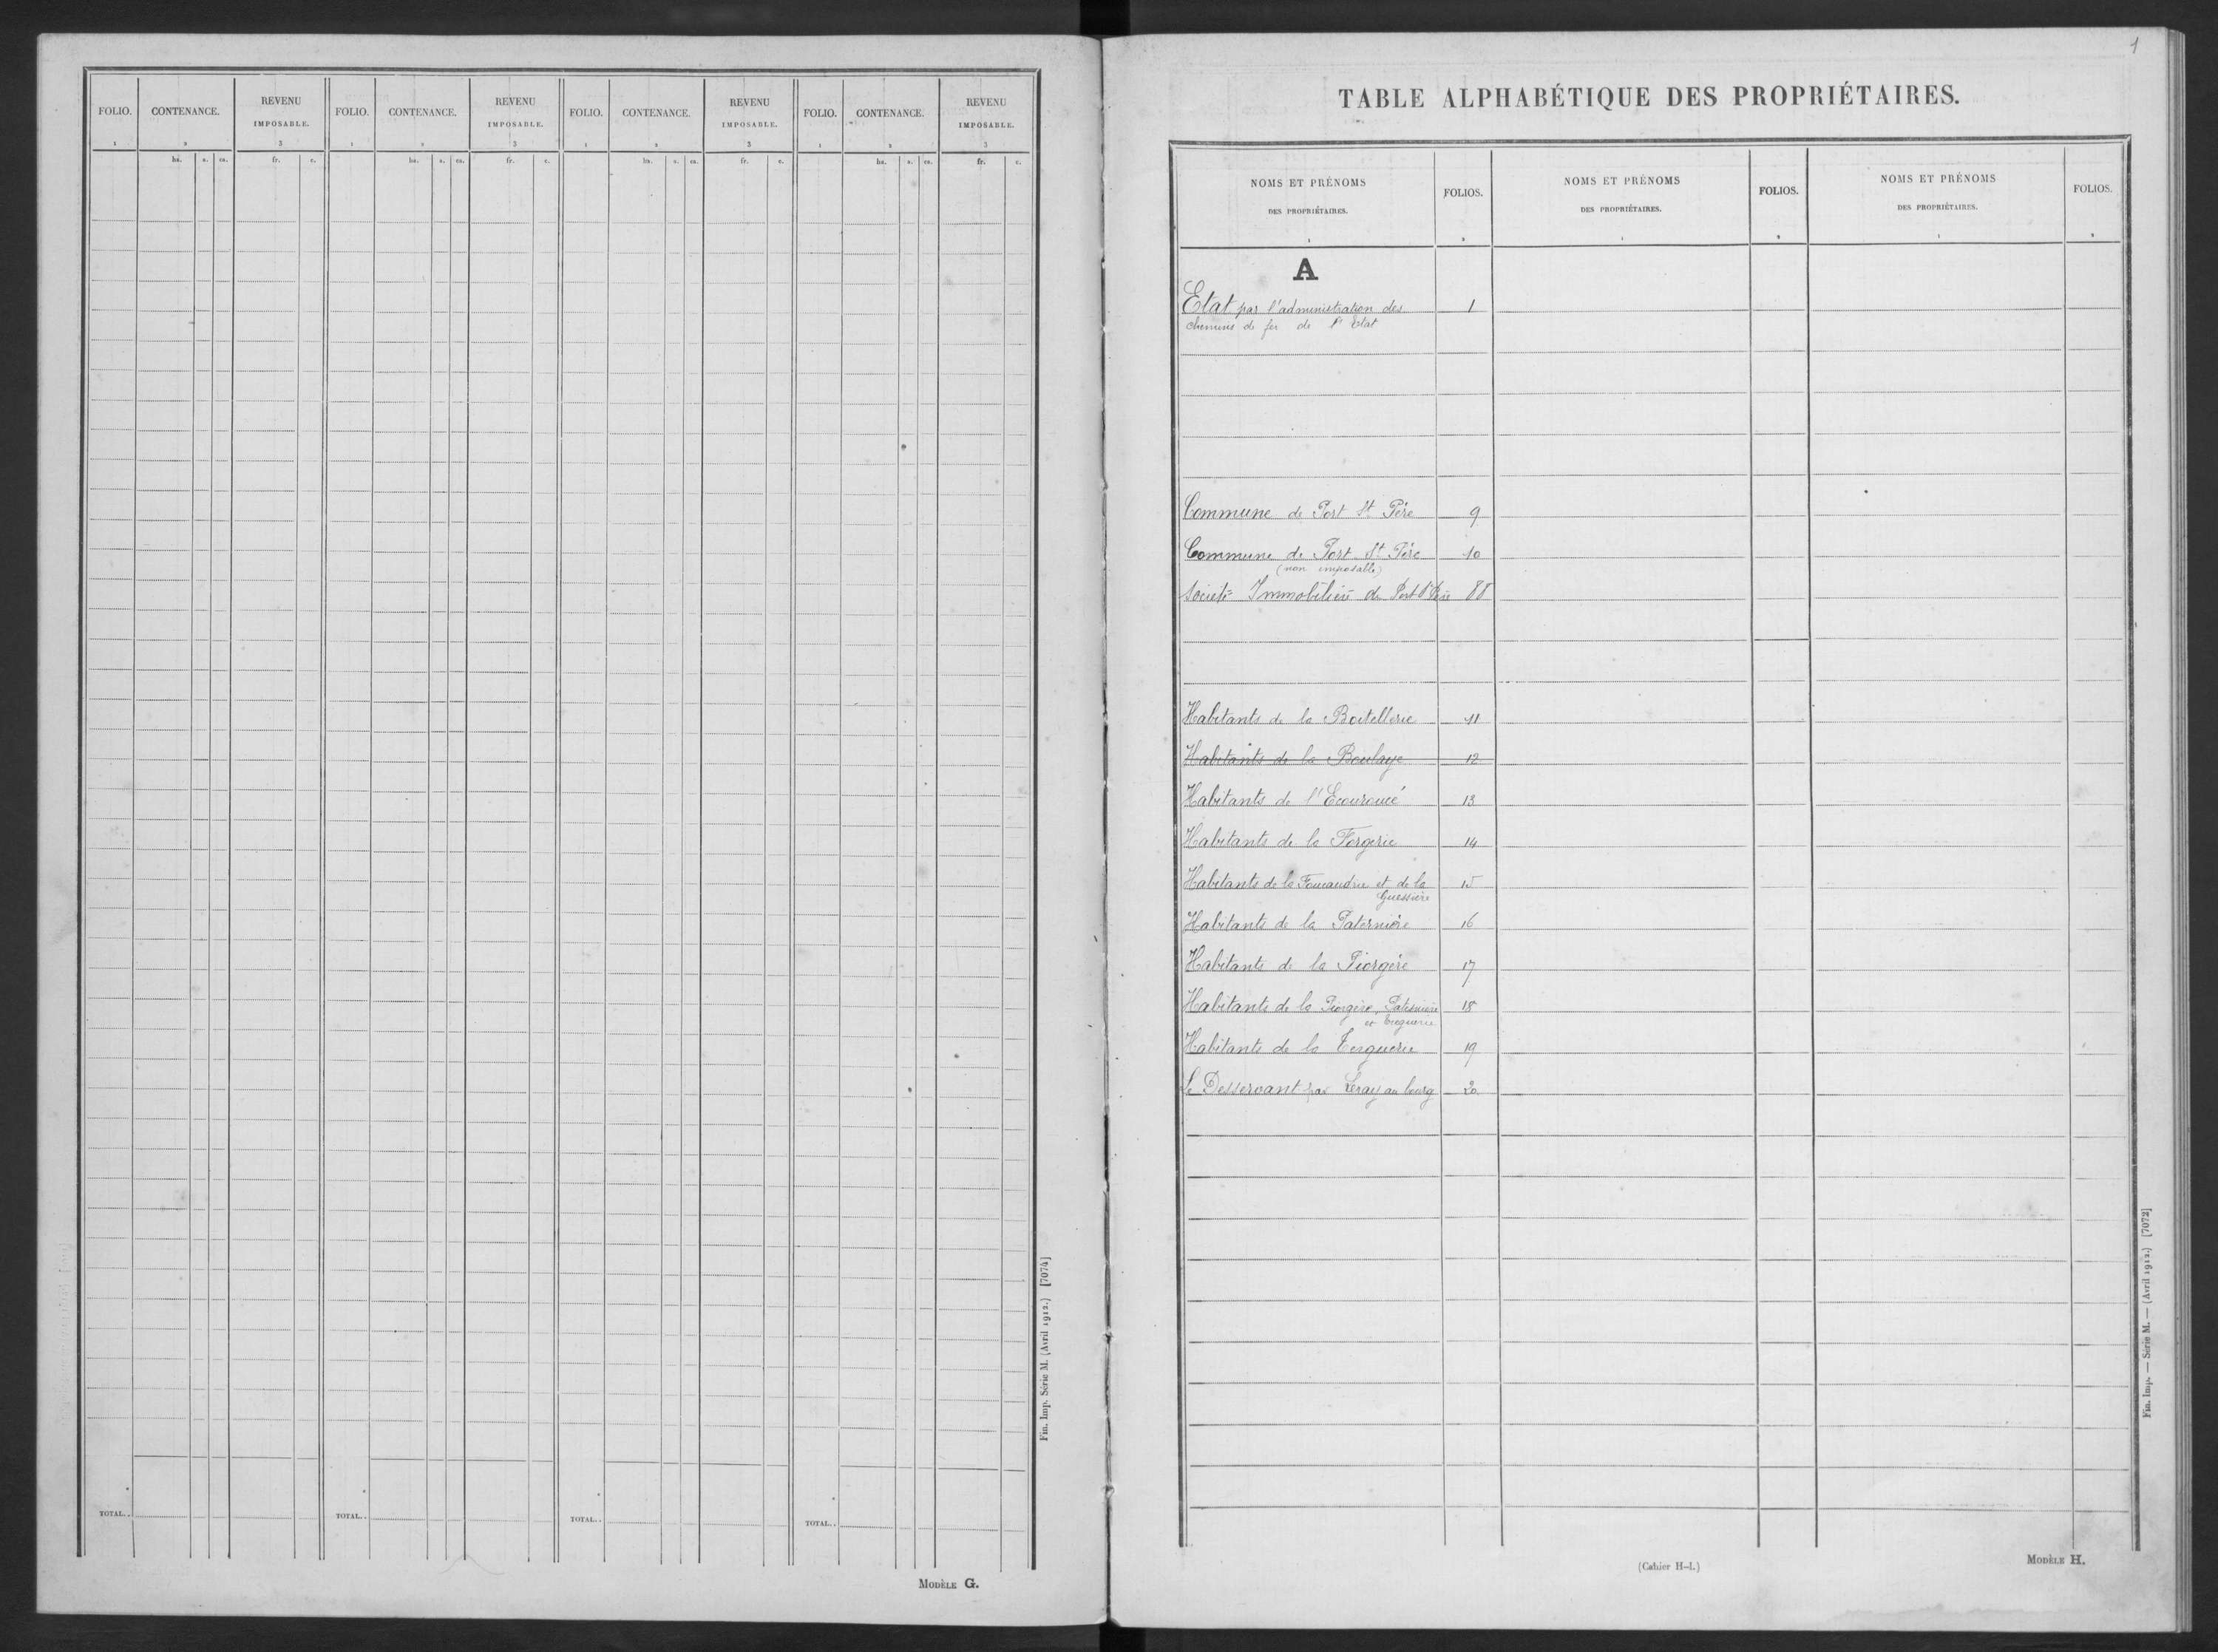 FOLIO. CONTENANCE. REVENU IMPOSABLE. FOLIO. CONTENANCE. REVENU IMPOSABLE. FOLIO. CONTENANCE. REVENU IMPOSABLE. FOLIO. CONTENANCE. REVENU IMPOSABLE.
1 2 3 1 2 3 1 2 3 1 2 3
ha. a. ca. fr. c. ha. a. ca. fr. c. ha. a. ca. fr. c. ha. a. ca. fr. c.
TOTAL.. TOTAL.. TOTAL.. TOTAL..
Fin. Imp. Série M. (Avril 1912.) [7074]
MODÈLE G.
1
TABLE ALPHABÉTIQUE DES PROPRIÉTAIRES.
NOMS ET PRÉNOMS DES PROPRIÉTAIRES. FOLIOS. NOMS ET PRÉNOMS DES PROPRIÉTAIRES. FOLIOS. NOMS ET PRÉNOMS DES PROPRIÉTAIRES. FOLIOS.
1 2 1 2 1 2
A
Etat par l'administration des 1
chemins de fer de l'Etat
Commune de Port St Père 9
Commune de Port St Père 10
(non imposable)
Société Immobilière de Port St Père 88
Habitants de la Boitellerie 11
Habitants de la Boulaye 12
Habitants de l'Ecouroucé 13
Habitants de la Forgerie 14
Habitants de la Foucaudrie et de la 15
Guessière
Habitants de la Paternière 16
Habitants de la Piorgère 17
Habitants de la Piorgère, Paternière 18
et
Habitants de la 19
Le Desservant par Leray au bourg 20
(Cahier H-1.)
MODÈLE H.
Fin. Imp. — Série M. — (Avril 1912.) [7072]